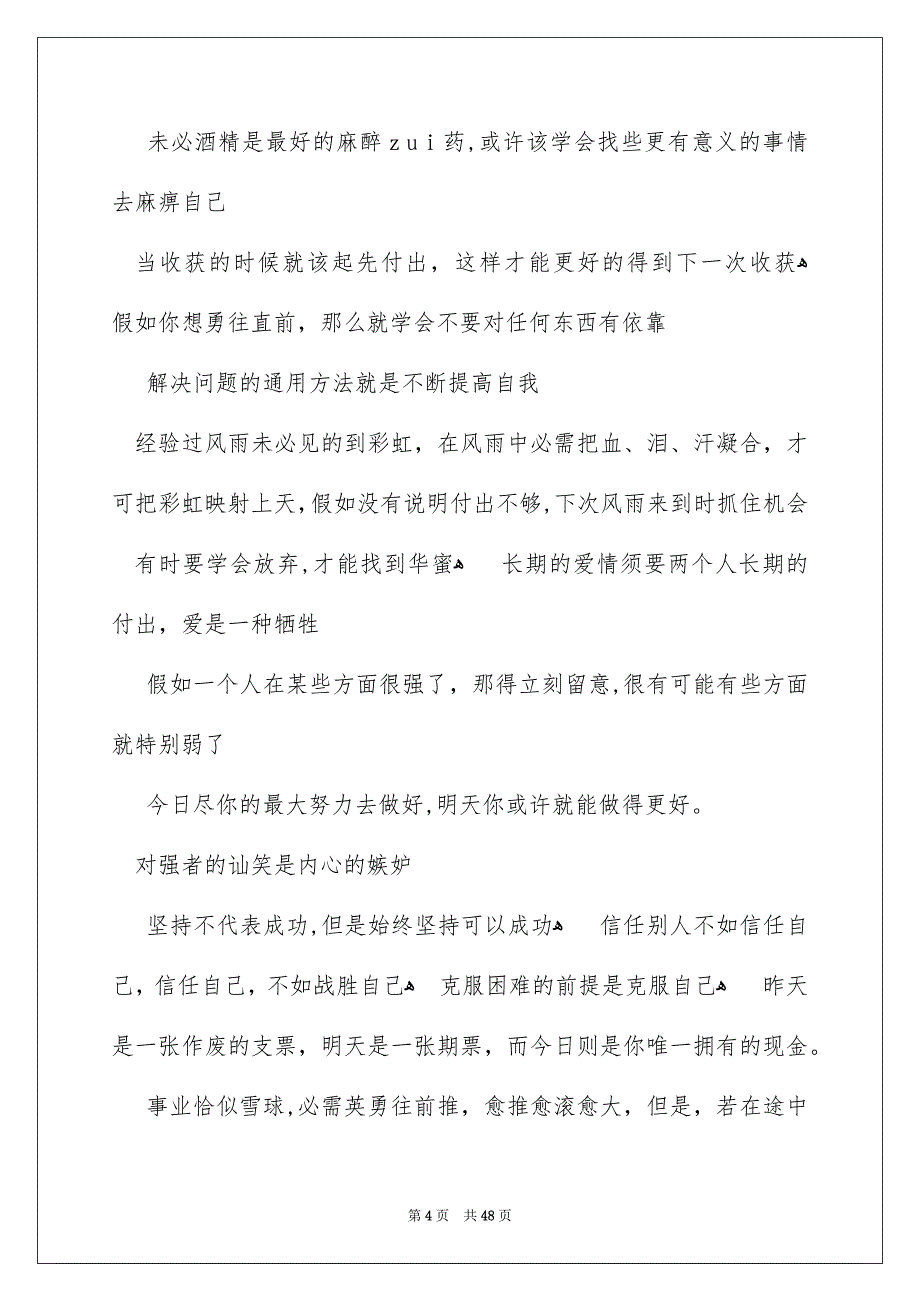 未必酒精是最好的麻醉zui药,或许该学会找些更有意义的事情
去麻痹自己
当收获的时候就该起先付出，这样才能更好的得到下一次收获ﻫ
假如你想勇往直前，那么就学会不要对任何东西有依靠
解决问题的通用方法就是不断提高自我
经验过风雨未必见的到彩虹，在风雨中必需把血、泪、汗凝合，才
可把彩虹映射上天,假如没有说明付出不够,下次风雨来到时抓住机会
有时要学会放弃,才能找到华蜜ﻫ 长期的爱情须要两个人长期的
付出，爱是一种牺牲
假如一个人在某些方面很强了，那得立刻留意,很有可能有些方面
就特别弱了
今日尽你的最大努力去做好,明天你或许就能做得更好。
对强者的讪笑是内心的嫉妒
坚持不代表成功,但是始终坚持可以成功ﻫ 信任别人不如信任自
己，信任自己，不如战胜自己ﻫ 克服困难的前提是克服自己ﻫ 昨天
是一张作废的支票，明天是一张期票，而今日则是你唯一拥有的现金。
事业恰似雪球,必需英勇往前推，愈推愈滚愈大，但是，若在途中
第 4 页 共 48 页